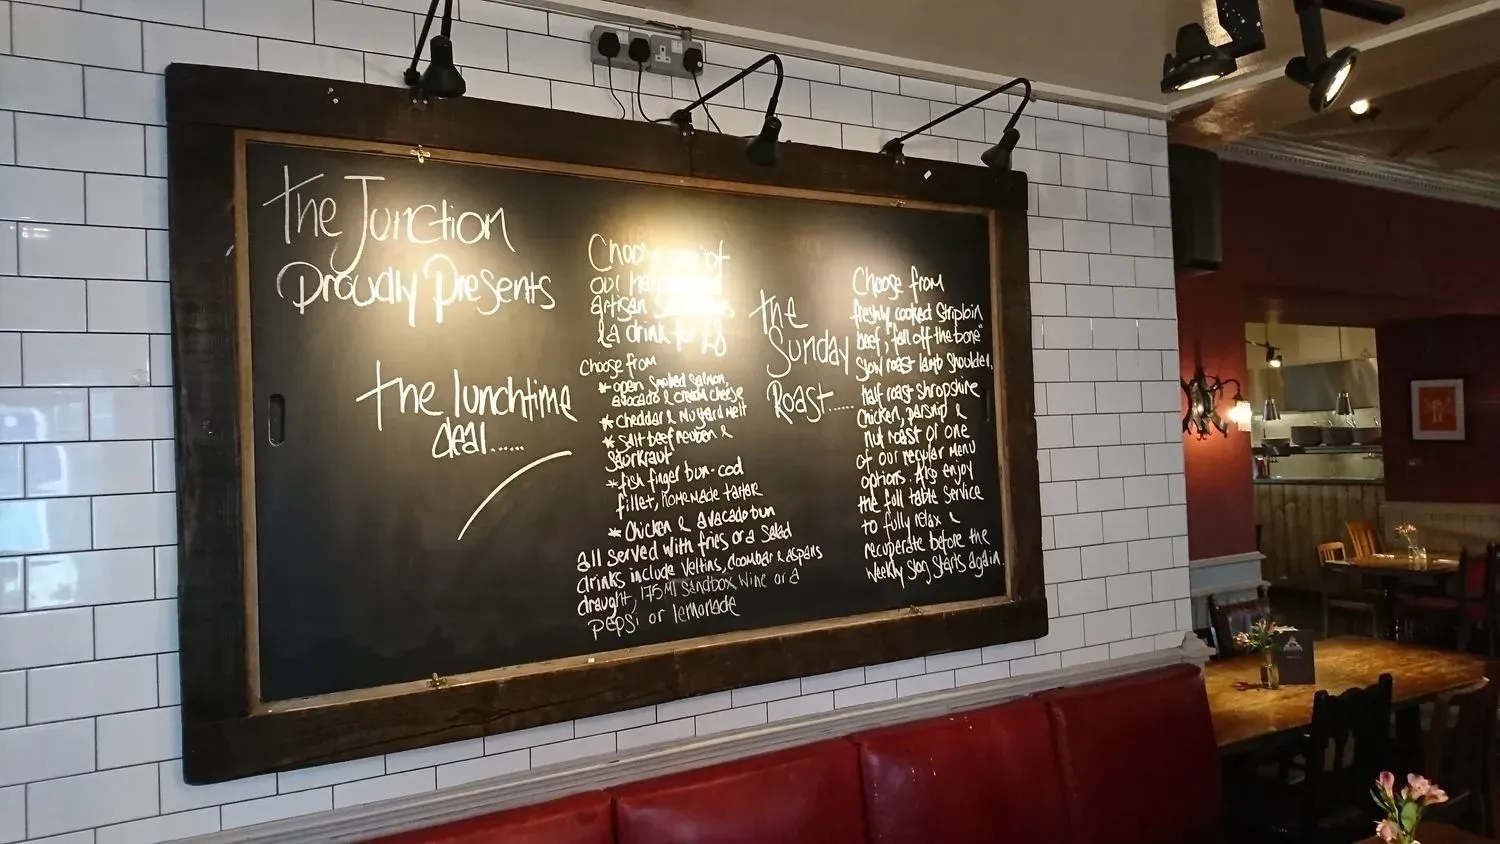 the Junction
Proudly Presents
the lunchtime
deal......
Choose of
our
artisan
& a drink for
choose from
* open smoked salmon,
avocado & cream cheese
* cheddar & mustard melt
* Salt beef reuben &
Saurkraut
* fish finger bun - cod
fillet, homemade tartar
* Chicken & avacado bun
all served with fries or a salad
drinks include Veltins, doombar & aspalls
draught, 175ml Sandbox Wine or a
pepsi or lemonade
the
Sunday
Roast......
Choose from
freshly cooked striploin
beef, "fall off the bone"
slow roast lamb shoulder,
half roast shropshire
chicken, parsnip &
nut roast or one
of our regular menu
options. Also enjoy
the full table service
to fully relax &
recuperate before the
weekly slog starts again.